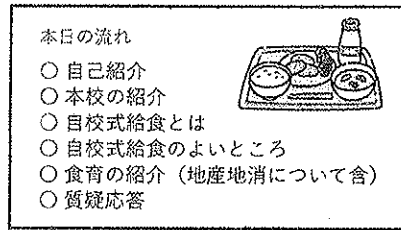 本日の流れ
○ 自己紹介
○ 本校の紹介
○ 自校式給食とは
○ 自校式給食のよいところ
○ 食育の紹介（地産地消について含）
○ 質疑応答